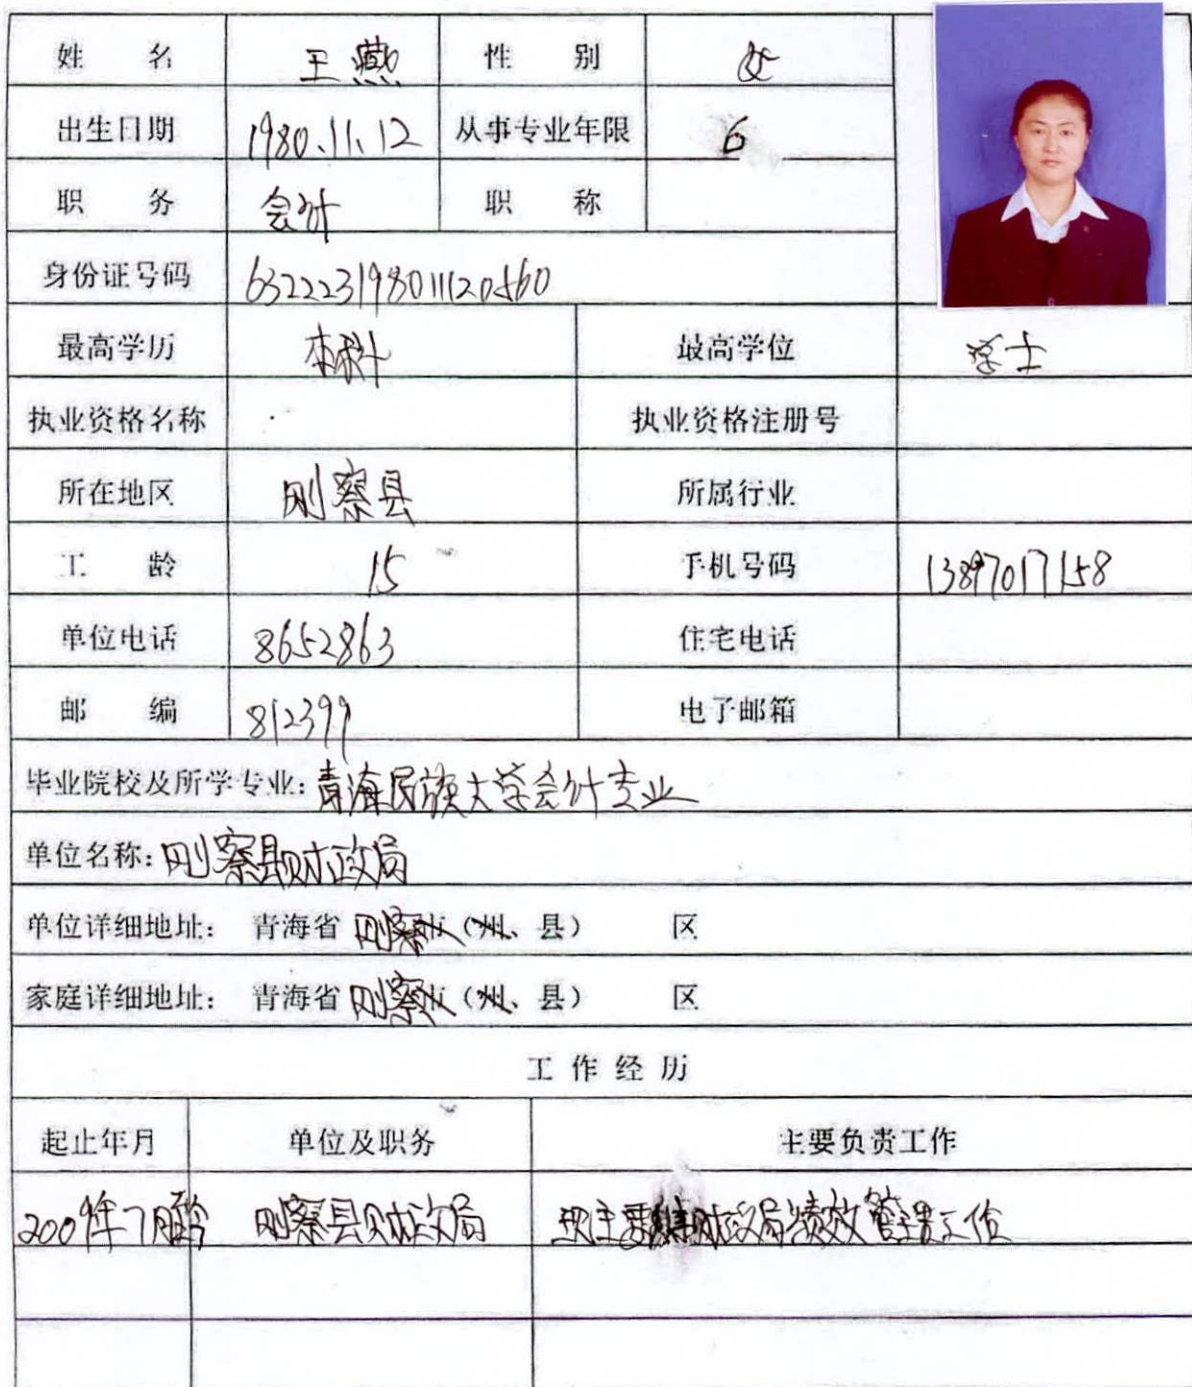 姓 名 王燕 性 别 女
出生日期 1980.11.12 从事专业年限 6
职 务 会计 职 称
身份证号码 632223198011120560
最高学历 本科 最高学位 学士
执业资格名称 执业资格注册号
所在地区 刚察县 所属行业
工 龄 15 手机号码 13897017158
单位电话 8652863 住宅电话
邮 编 812399 电子邮箱
毕业院校及所学专业:青海民族大学会计专业
单位名称:刚察县财政局
单位详细地址: 青海省 刚察 (州、县) 区
家庭详细地址: 青海省 刚察 (州、县) 区
工 作 经 历
起止年月 单位及职务 主要负责工作
2009年7月至今 刚察县财政局 现主要 财政局绩效管理工作